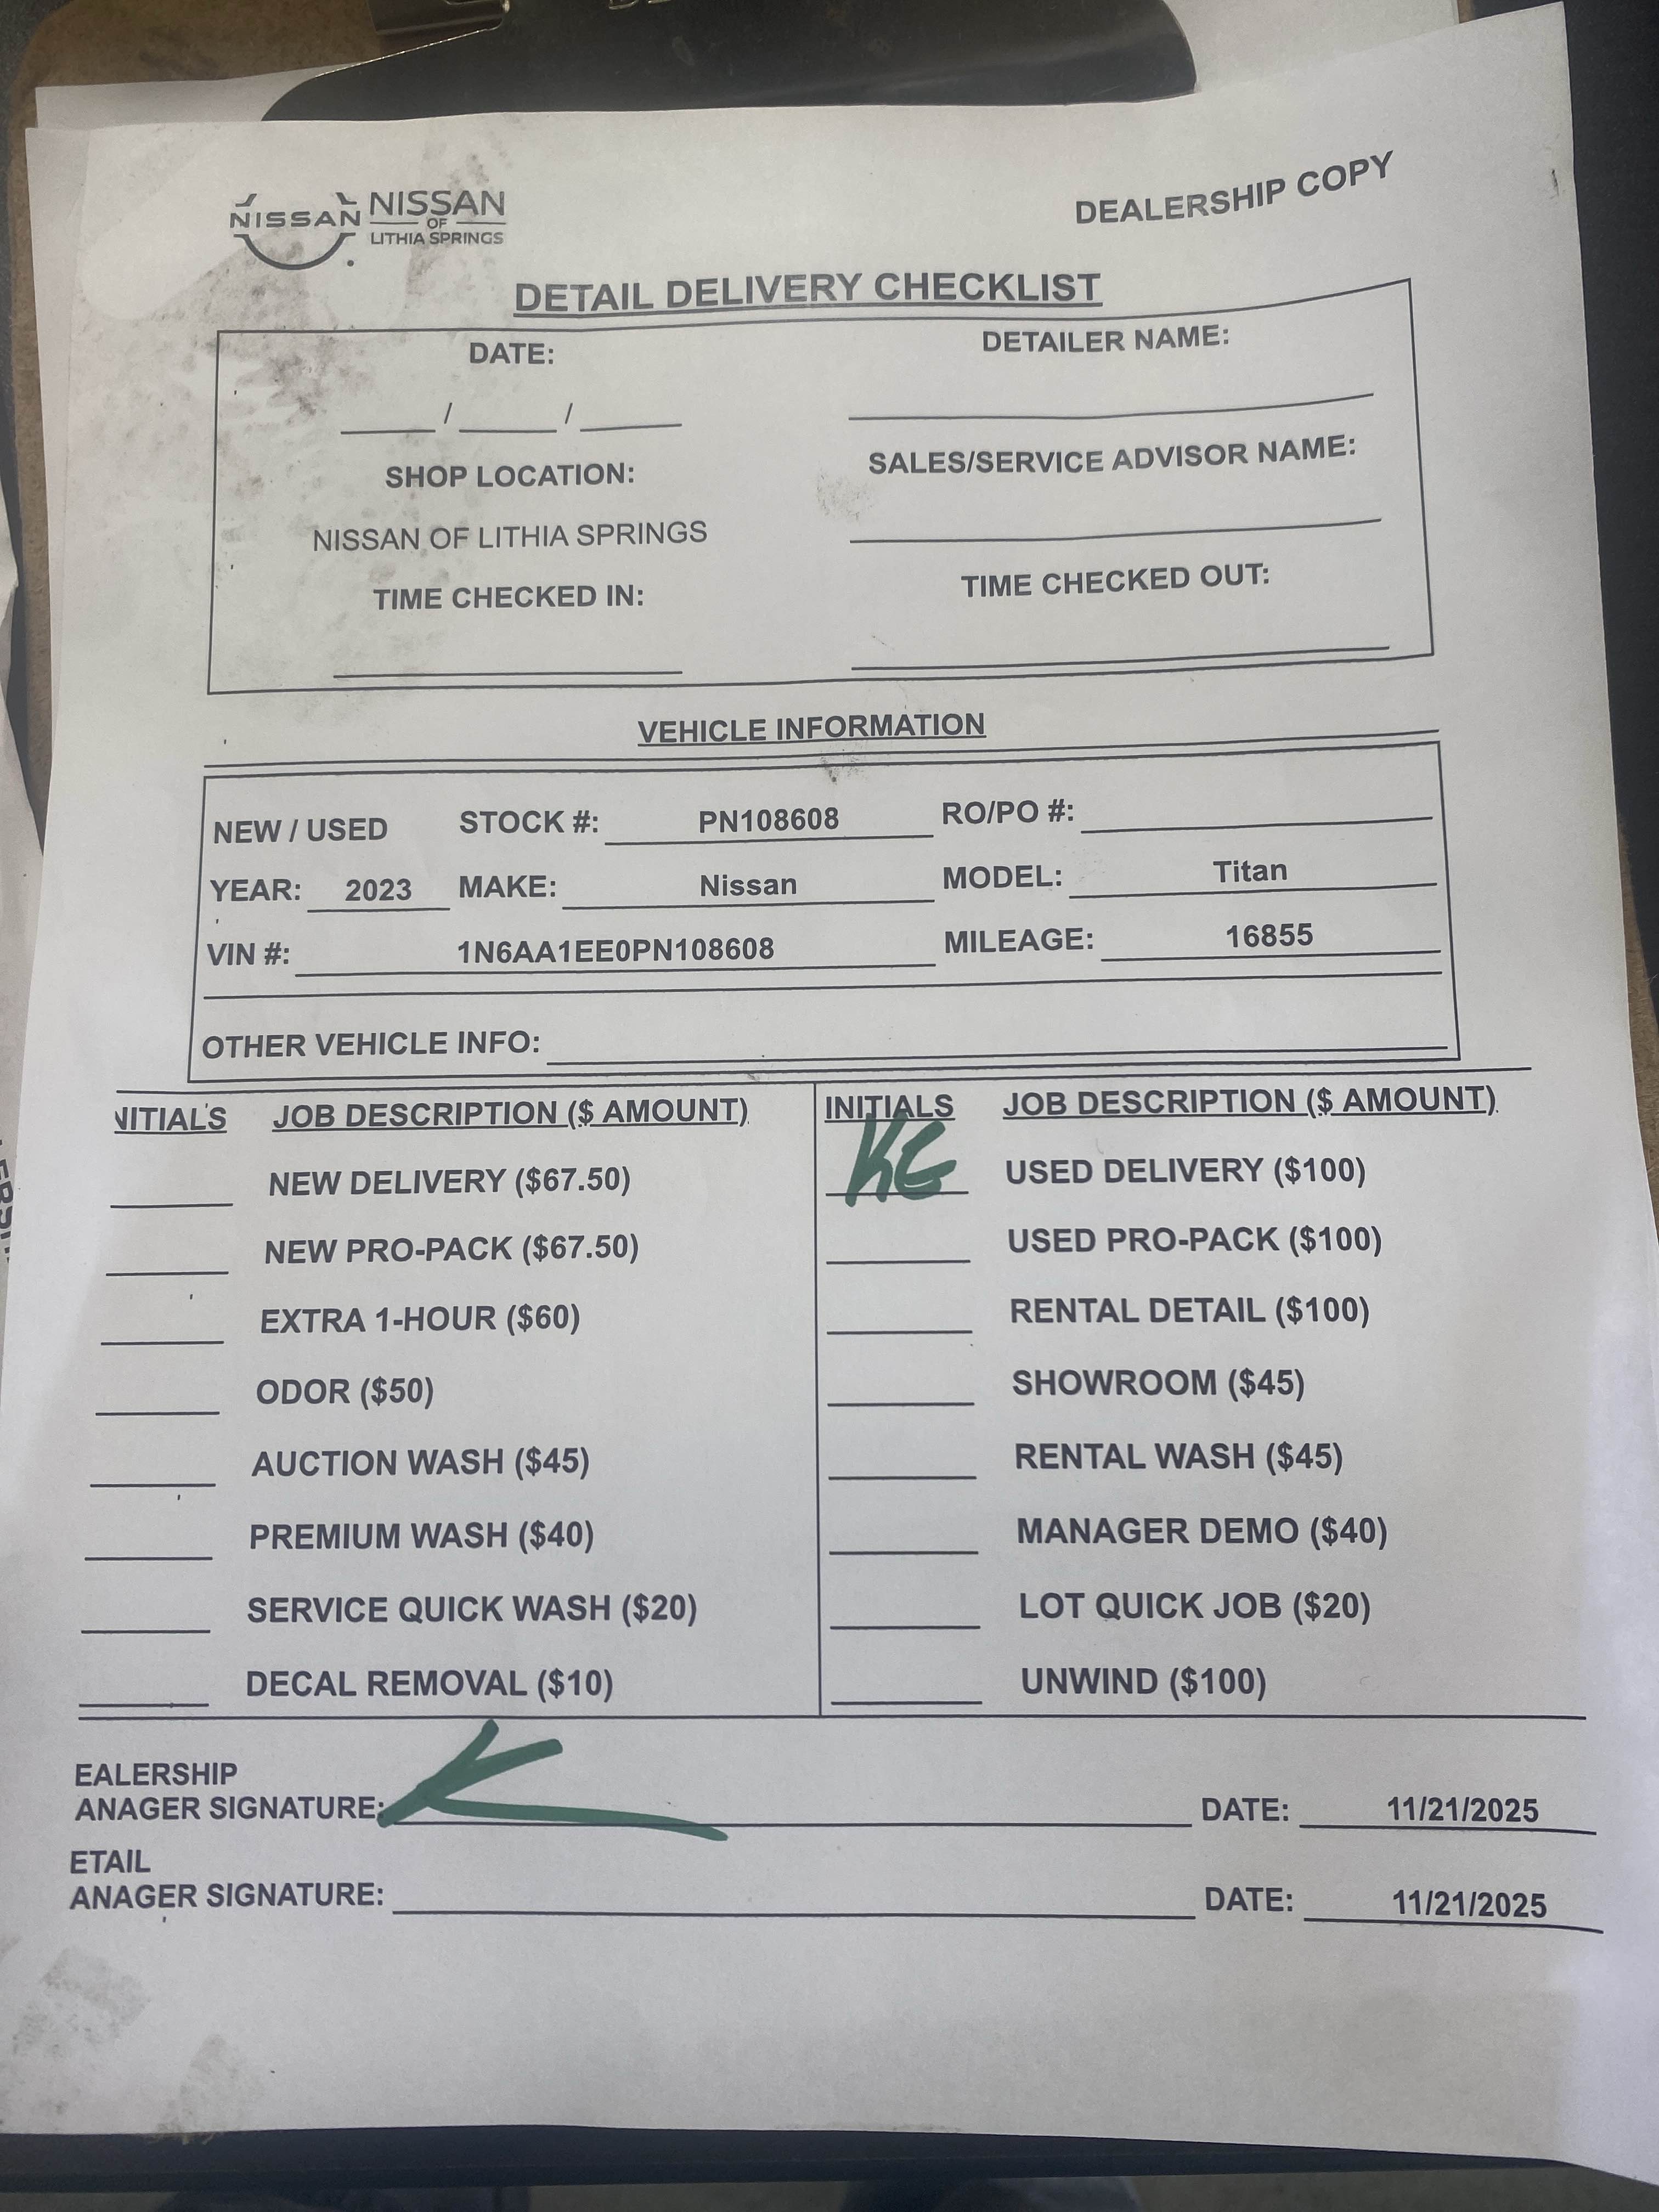 NISSAN NISSAN
OF
LITHIA SPRINGS
DEALERSHIP COPY
DETAIL DELIVERY CHECKLIST
DATE:
DETAILER NAME:
/ /
SHOP LOCATION:
SALES/SERVICE ADVISOR NAME:
NISSAN OF LITHIA SPRINGS
TIME CHECKED IN:
TIME CHECKED OUT:
VEHICLE INFORMATION
NEW / USED STOCK #: PN108608 RO/PO #:
YEAR: 2023 MAKE: Nissan MODEL: Titan
VIN #: 1N6AA1EE0PN108608 MILEAGE: 16855
OTHER VEHICLE INFO:
NITIALS JOB DESCRIPTION ($ AMOUNT) INITIALS JOB DESCRIPTION ($ AMOUNT)
NEW DELIVERY ($67.50) KG USED DELIVERY ($100)
NEW PRO-PACK ($67.50) USED PRO-PACK ($100)
EXTRA 1-HOUR ($60) RENTAL DETAIL ($100)
ODOR ($50) SHOWROOM ($45)
AUCTION WASH ($45) RENTAL WASH ($45)
PREMIUM WASH ($40) MANAGER DEMO ($40)
SERVICE QUICK WASH ($20) LOT QUICK JOB ($20)
DECAL REMOVAL ($10) UNWIND ($100)
EALERSHIP
ANAGER SIGNATURE: DATE: 11/21/2025
ETAIL
ANAGER SIGNATURE: DATE: 11/21/2025